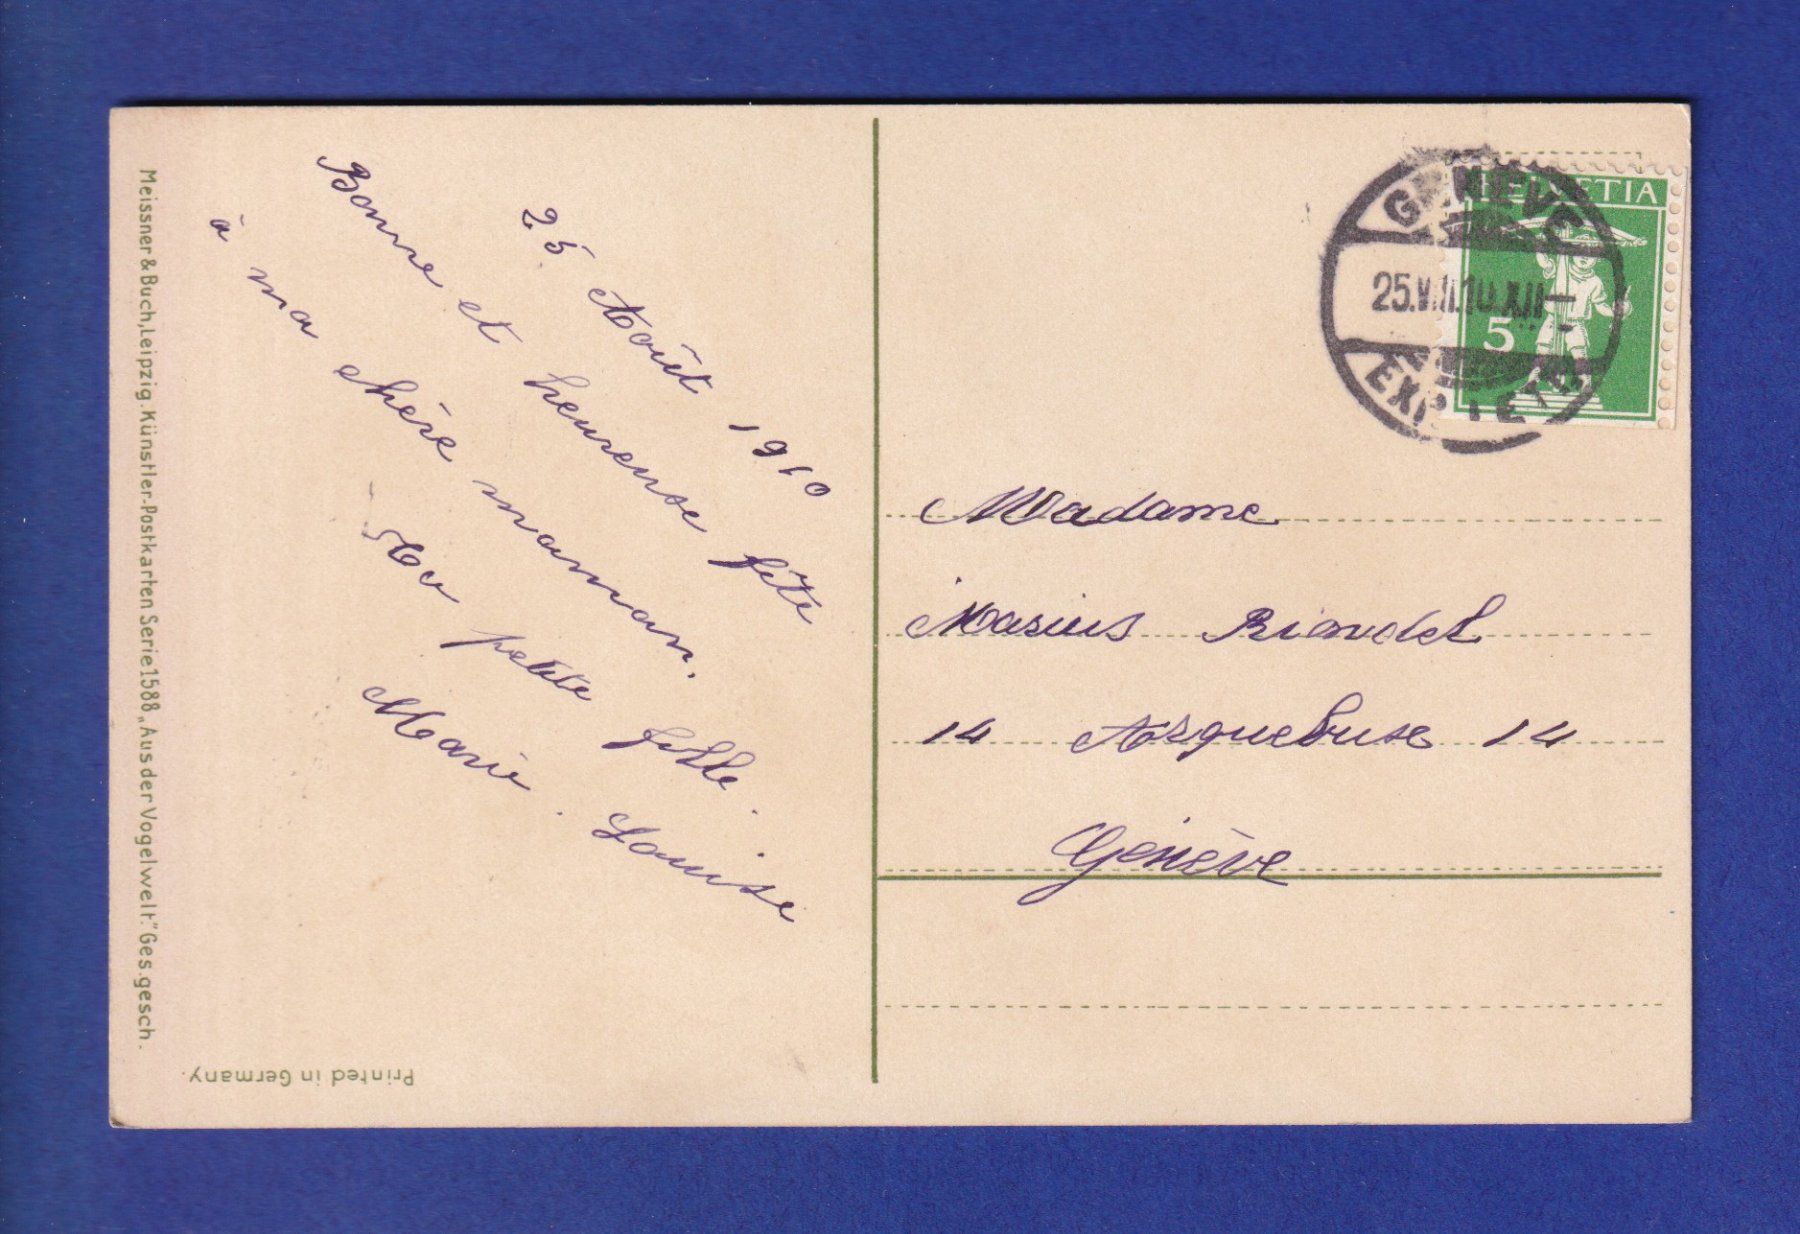 Meissner & Buch, Leipzig. Künstler-Postkarten Serie 1588 „Aus der Vogelwelt." Ges. gesch.
Printed in Germany.
25 Août 1910
Bonne et heureuse fête
à ma chère maman.
Ta petite fille.
Marie. Louise
HELVETIA
5
GENÈVE
25.VIII.10.XII–
Madame
Marius Riondet
14 Arquebuse 14
Genève